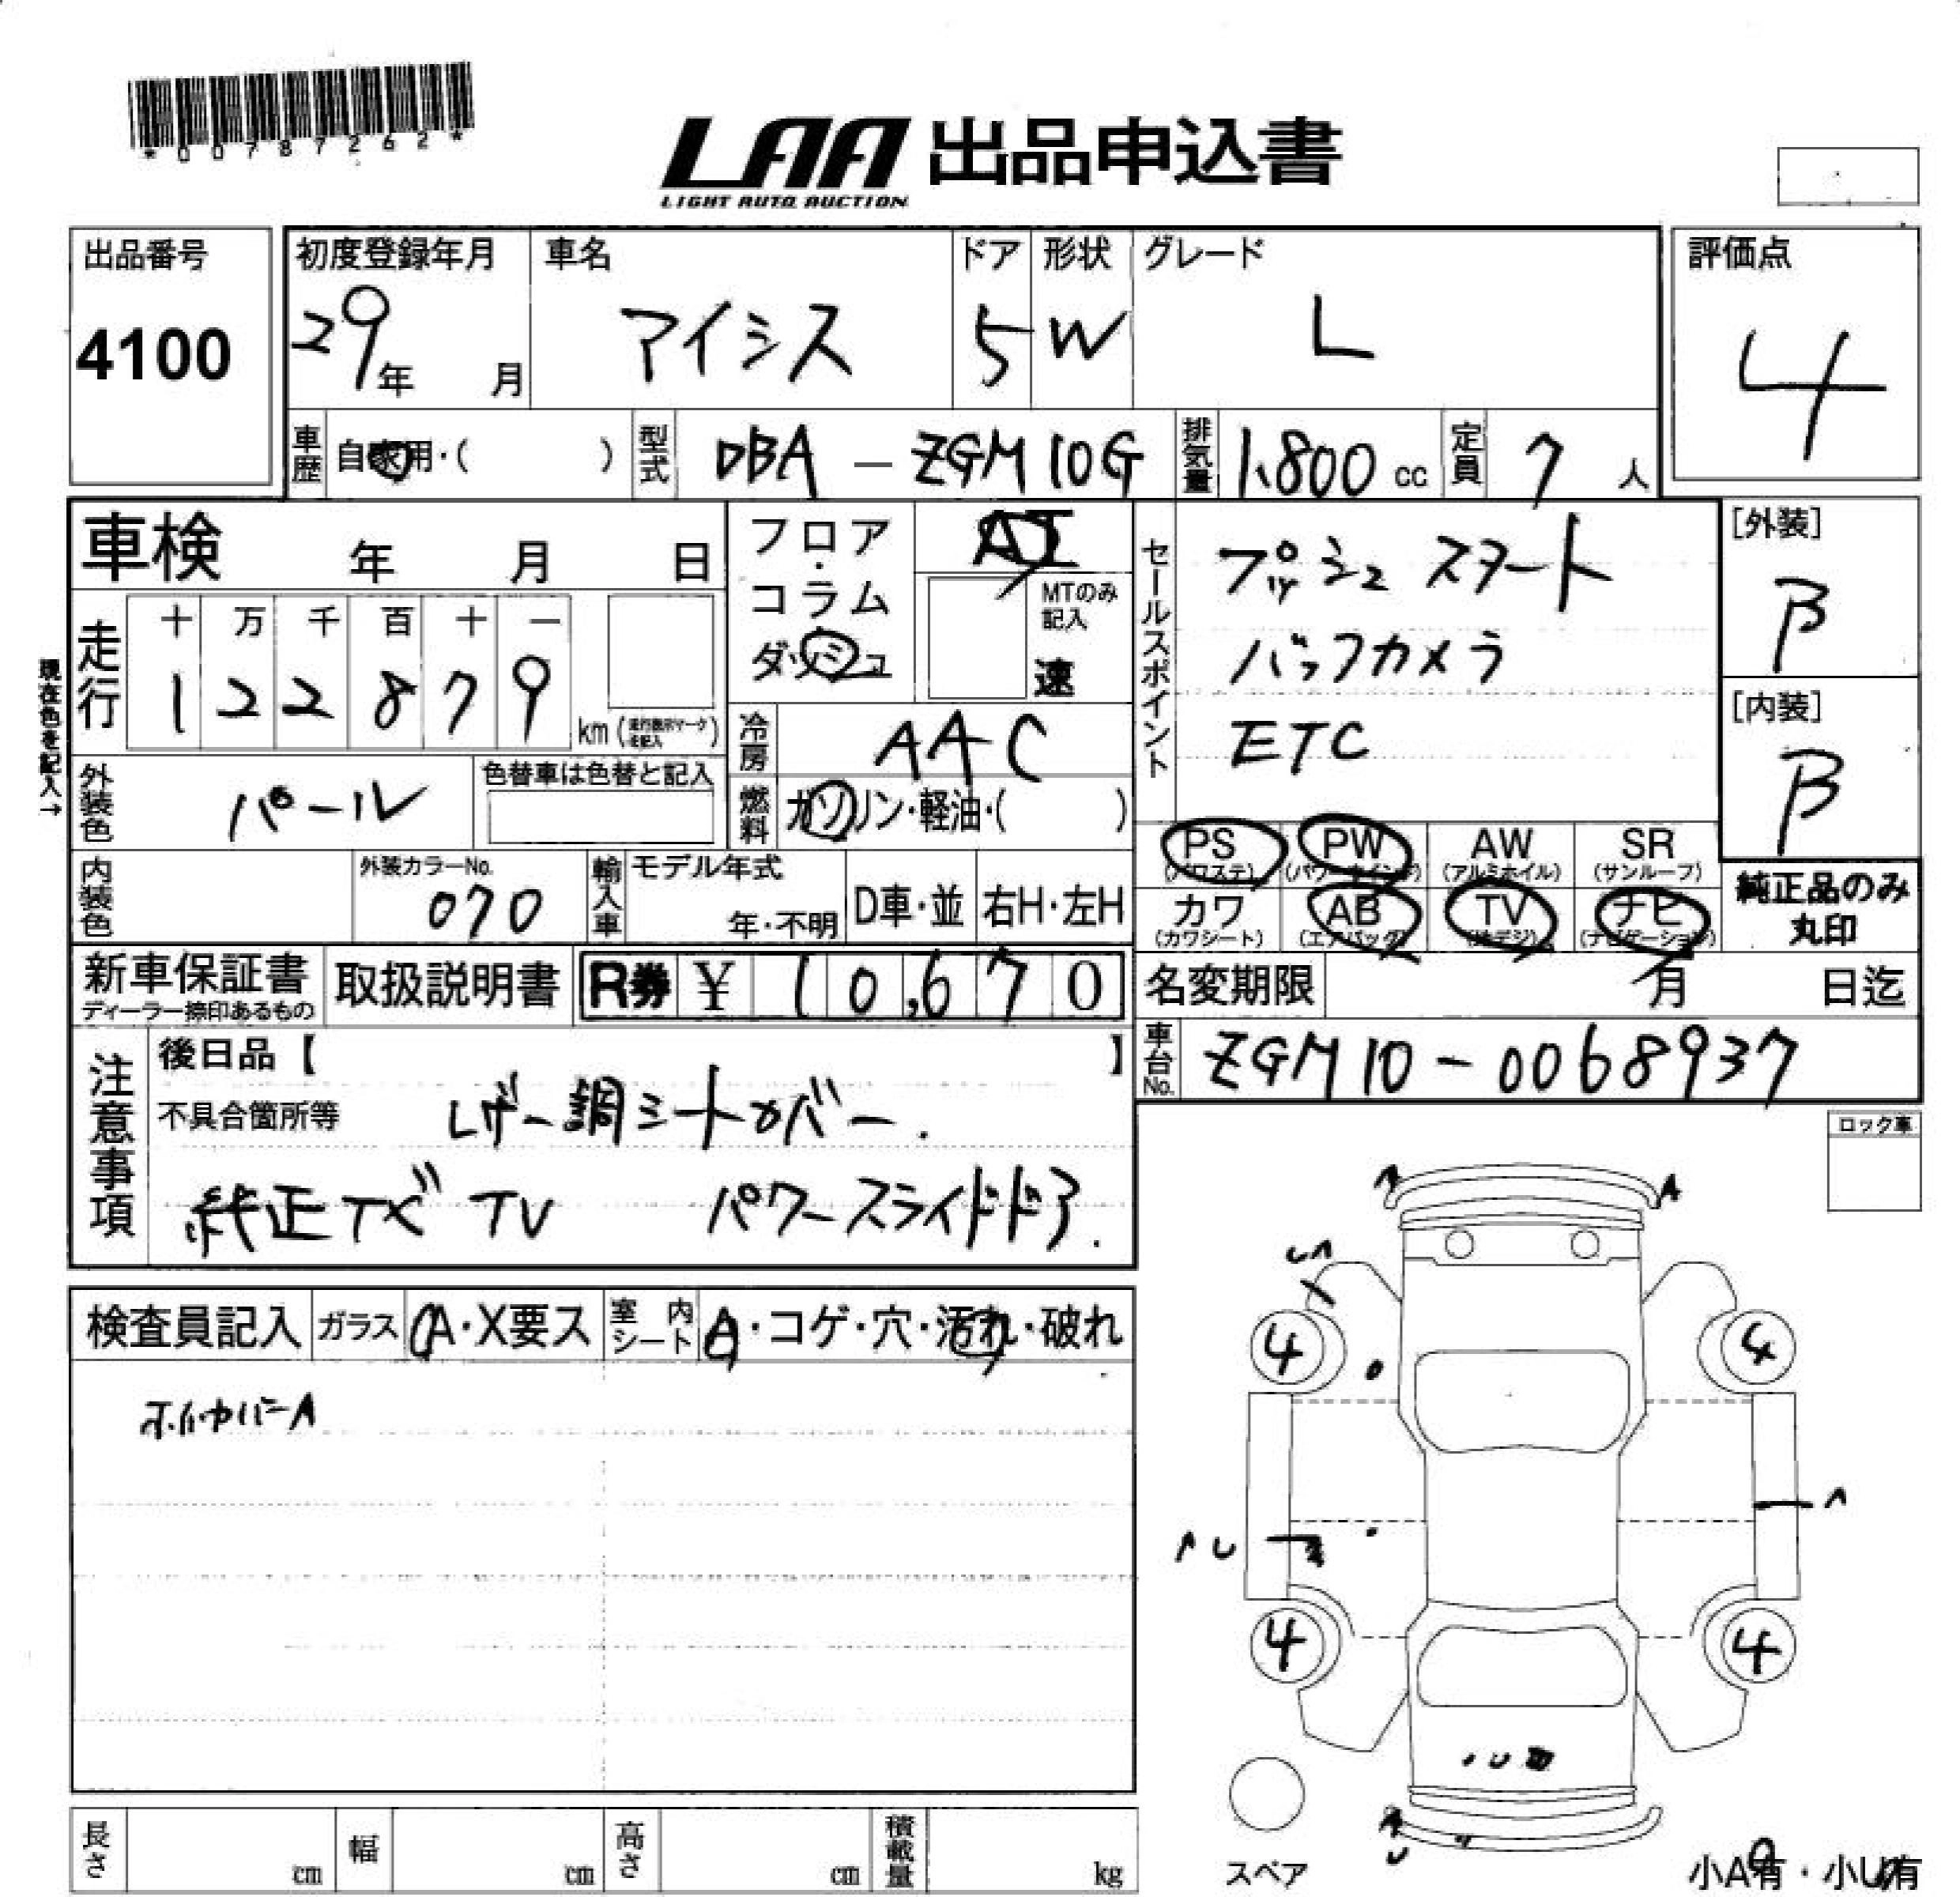 *00787262*
LAA 出品申込書
LIGHT AUTO AUCTION
出品番号
4100
初度登録年月
29年 月
車名
アイシス
ドア
5
形状
W
グレード
L
評価点
4
車歴 自家用・( )
型式 DBA — ZGM10G
排気量 1,800 cc
定員 7 人
車検 年 月 日
フロア・コラム・ダッシュ
AT
MTのみ記入
速
セールスポイント
プッシュ スタート
バックカメラ
ETC
[外装]
B
[内装]
B
現在色を記入→
走行
十 万 千 百 十 一
1 2 2 8 7 9 km
冷房 AAC
外装色 パール
色替車は色替と記入
燃料 ガソリン・軽油・( )
PS (パワステ)
PW (パワーウインド)
AW (アルミホイル)
SR (サンルーフ)
カワ (カワシート)
AB (エアバック)
TV (地デジ)
ナビ (ナビゲーション)
純正品のみ
丸印
内装色
外装カラーNo.
070
輸入車
モデル年式
年・不明
D車・並
右H・左H
新車保証書
ディーラー捺印あるもの
取扱説明書
R券 ¥ 10,670
名変期限 月 日迄
車台No. ZGM10-0068937
注意事項
後日品【 】
不具合箇所等 レザー調シートカバー.
純正ナビ TV パワースライドドア.
ロック車
検査員記入
ガラス A・X要ス
室内シート A・コゲ・穴・汚れ・破れ
ホイルカバーA
A
4
4
4
4
スペア
小A有・小U有
長さ cm
幅 cm
高さ cm
積載量 kg